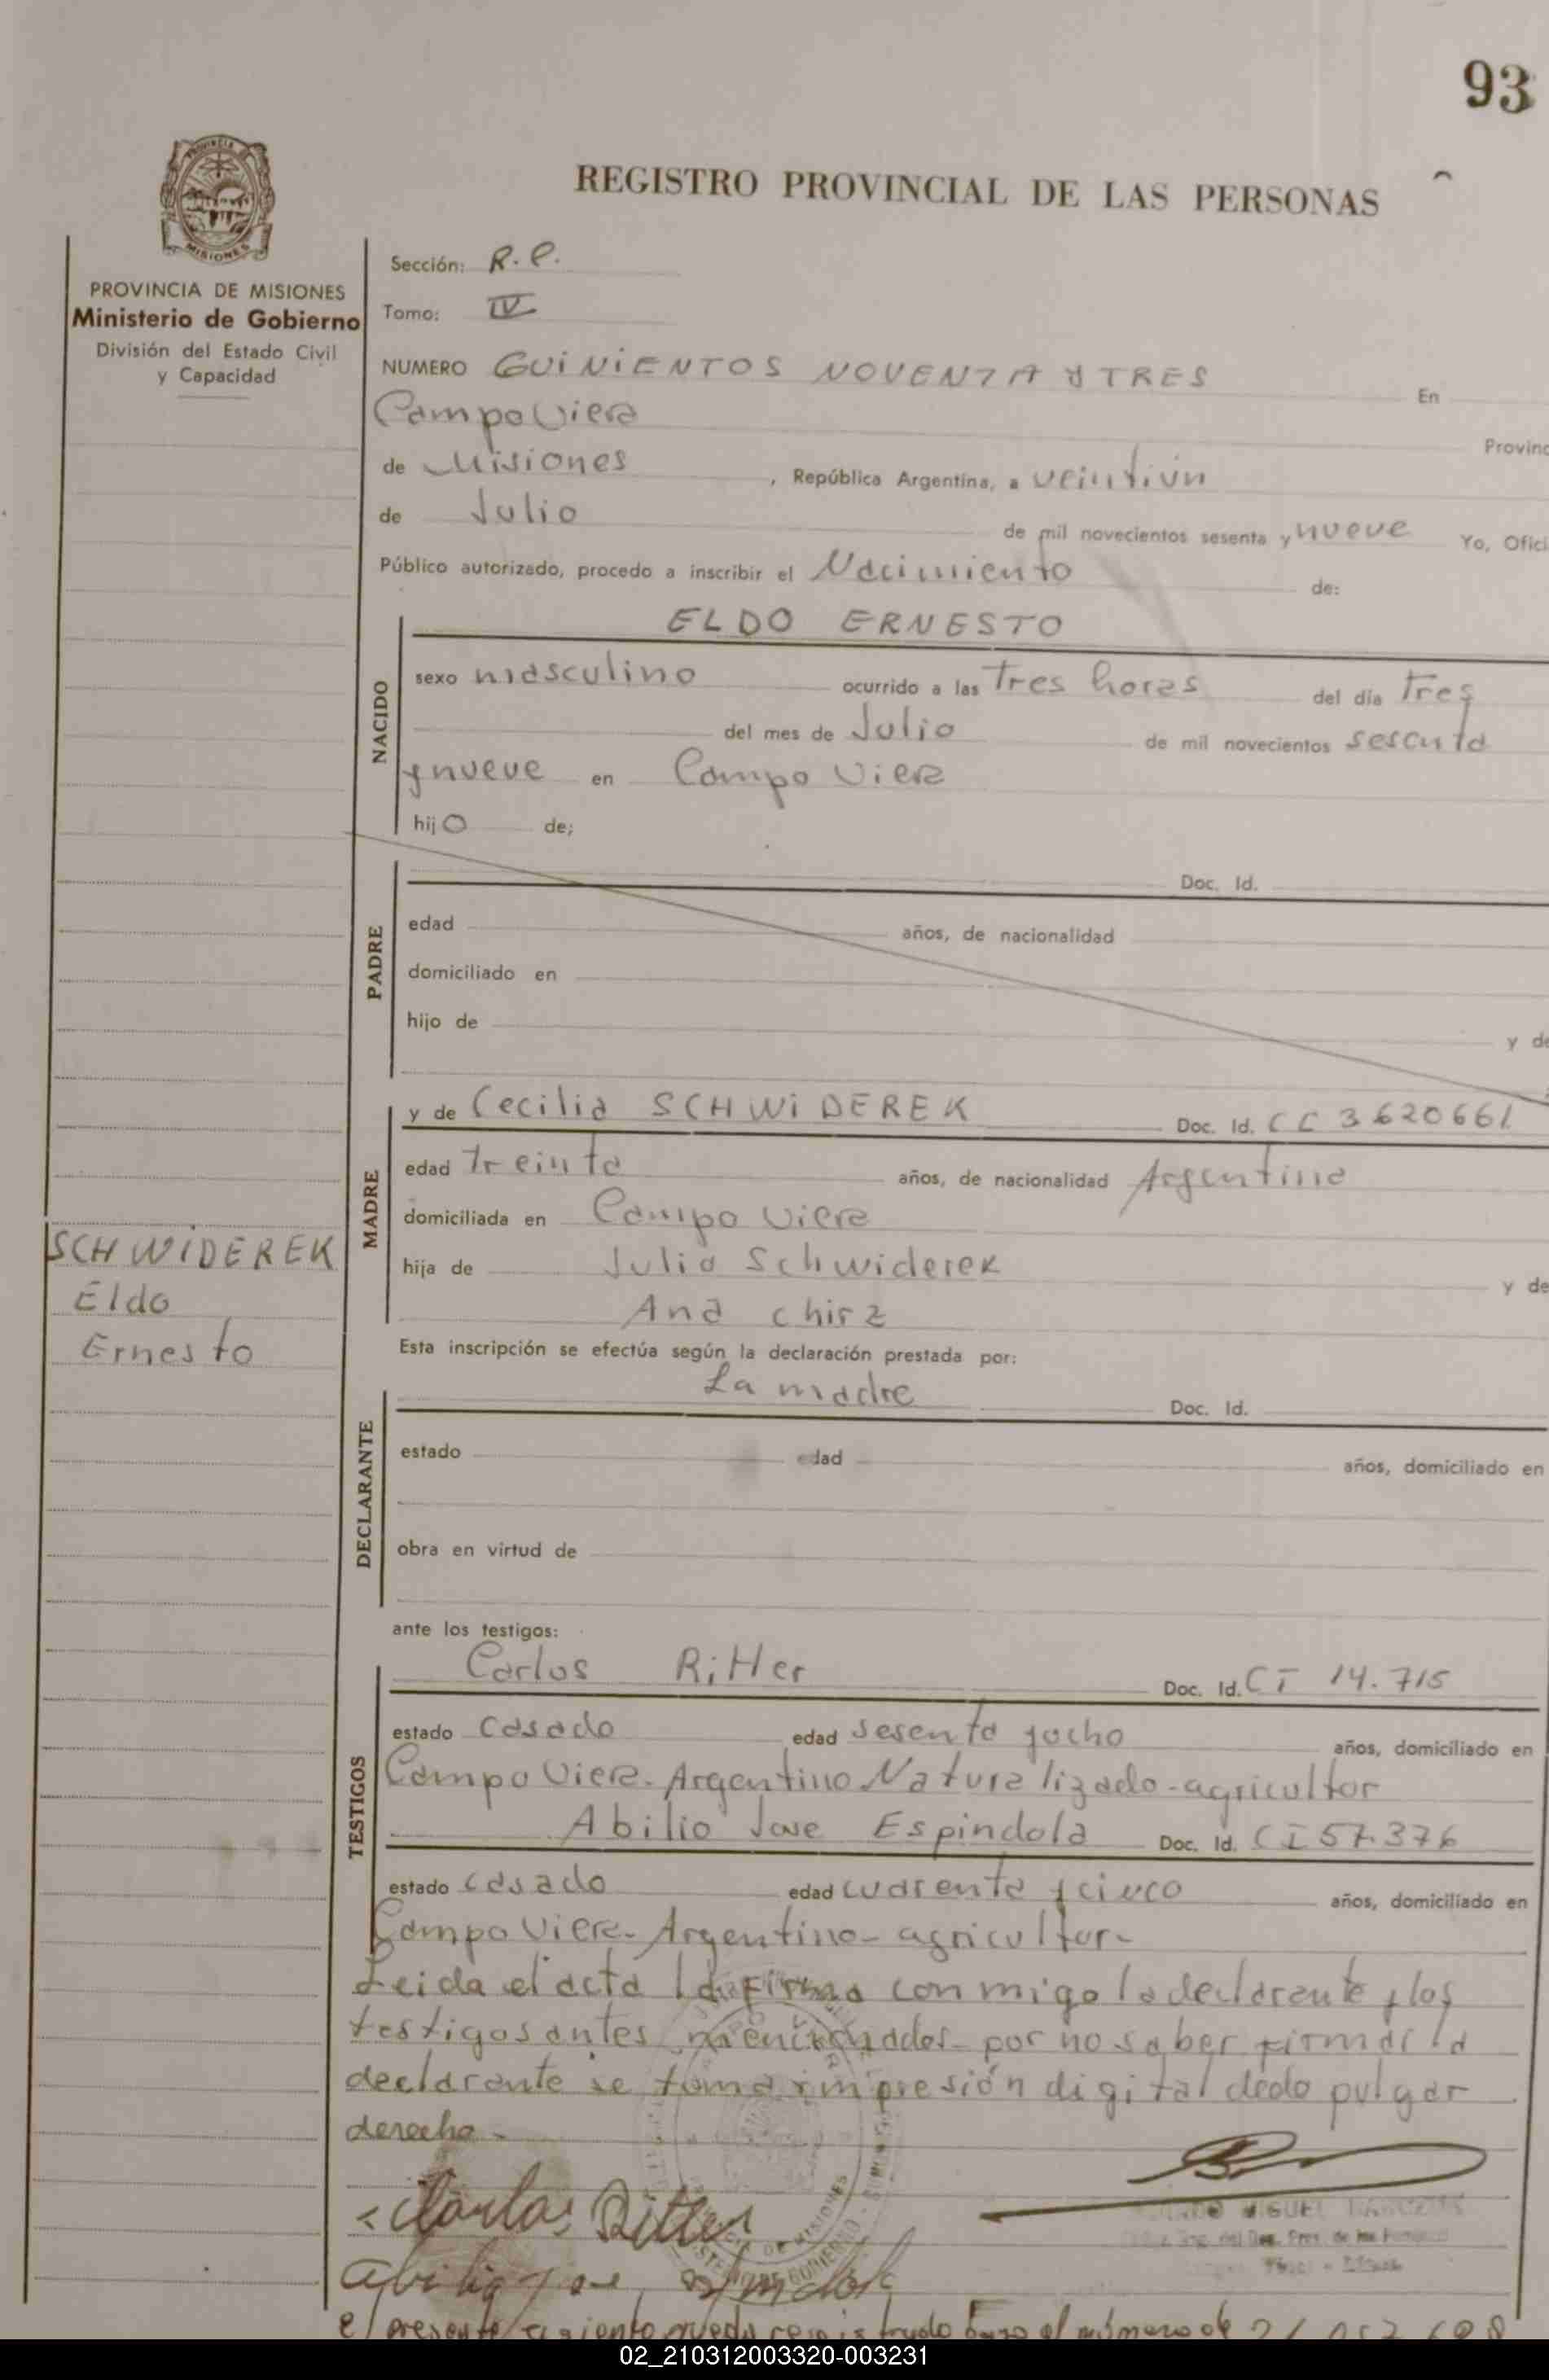 93
REGISTRO PROVINCIAL DE LAS PERSONAS
MISIONES
PROVINCIA DE MISIONES
Ministerio de Gobierno
División del Estado Civil
y Capacidad
Sección: R.P.
Tomo: IV
NUMERO QUiNiENTOS NOVENTA y TRES En
Campo Viera Provinc
de Misiones , República Argentina, a veintiún
de Julio de mil novecientos sesenta y nueve Yo, Ofici
Público autorizado, procedo a inscribir el Nacimiento de:
NACIDO
ELDO ERNESTO
sexo masculino ocurrido a las Tres horas del día Tres
del mes de Julio de mil novecientos sesenta
y nueve en Campo Viera
hijo de;
PADRE
Doc. Id.
edad años, de nacionalidad
domiciliado en
hijo de y de
MADRE
y de Cecilia SCHWiDEREK Doc. Id. CC 3620661
edad Treinta años, de nacionalidad Argentina
domiciliada en Campo Viera
hija de Julio Schwiderek y de
Ana
SCHWiDEREK
Eldo
Ernesto
Esta inscripción se efectúa según la declaración prestada por:
DECLARANTE
La madre Doc. Id.
estado edad años, domiciliado en
obra en virtud de
ante los testigos:
TESTIGOS
Carlos Ritter Doc. Id. CI 14.715
estado casado edad sesenta y ocho años, domiciliado en
Campo Viera-Argentino Naturalizado-agricultor
Abilio Jose Espindola Doc. Id. CI 57.376
estado casado edad cuarenta y cinco años, domiciliado en
Campo Viera-Argentino-agricultor-
Leida el acta la firma conmigo la declarante y los
testigos antes mencionados-por no saber firmar la
declarante se toma impresión digital dedo pulgar
derecho-
Carlos Ritter
MIGUEL
Abilio Jose Espindola
el presente asiento queda registrado bajo el número de
02_210312003320-003231